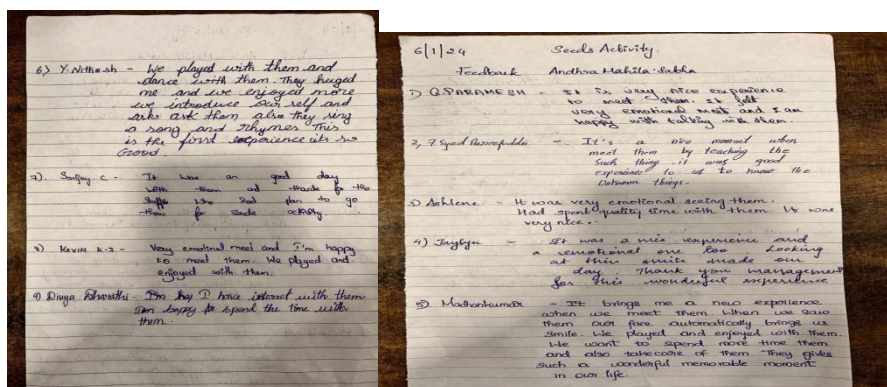 6) Y. Nithesh - We played with them and
dance with them. They huged
me and we enjoyed more
we introduce our self and
ask them also they sing
a song and rhymes This
is the first experience its so
Good.
7). Sanjay C - It was an good day
with them and thanks for the
staffs who had plan to go
them for seeds activity
8) KEVIN K.S - Very emotinal meet and I'm happy
to meet them. We played and
enjoyed with them.
9) Divya Bharathi - I'm I have interact with them
I'm happy to spend the time with
them.
6/1/24 Seeds Activity.
Feedback Andhra Mahila Sabha
1) G. PARAMESH - It is very nice experience
to meet them. It felt
very emotional meet and I am
happy with talking with them.
2, - It's a nice moment when
meet them by teaching the
such thing. it was good
experience to us to know the
unknown things.
3) Ashlene - It was very emotional seeing them.
Had spent quality time with them It was
very nice.
4) - It was a nice experience and
a emotional one too Looking
at their smile made our
day. Thank you management
for this wonderful experience
5) Madhankumar - It brings me a new experience
when we meet them When we saw
them our face automatically brings us
smile. We played and enjoyed with them.
We want to spend more time them
and also takecare of them They gives
such a wonderful memorable moment
in our life.